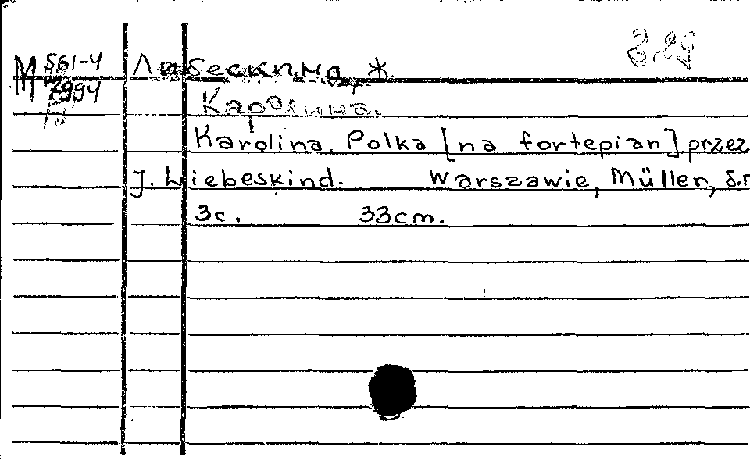 М 561-4
2994
Либескинд *
Каролина.
Karolina. Polka [na fortepian] przez
J. Liebeskind. Warszawie, Müller, s.
3c. 33cm.